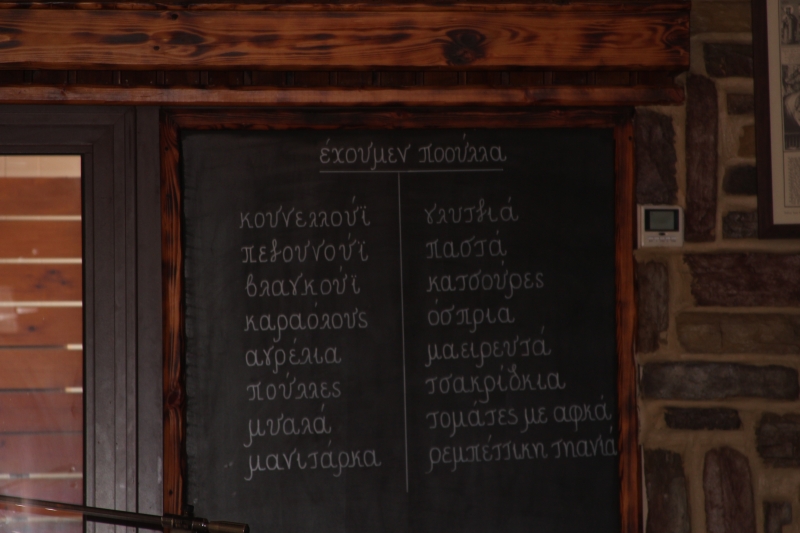 έχουμεν ποούλλα
κουνελλούϊ
πεζουνούϊ
βλαγκούϊ
καραόλους
αγρέλια
πούλλες
μυαλά
μανιτάρκα
γλυτζιά
παστά
κατσούρες
όσπρια
μαειρευτά
τσακρίδκια
τομάτες με αφκά
ρεμπέττικη πηνιά